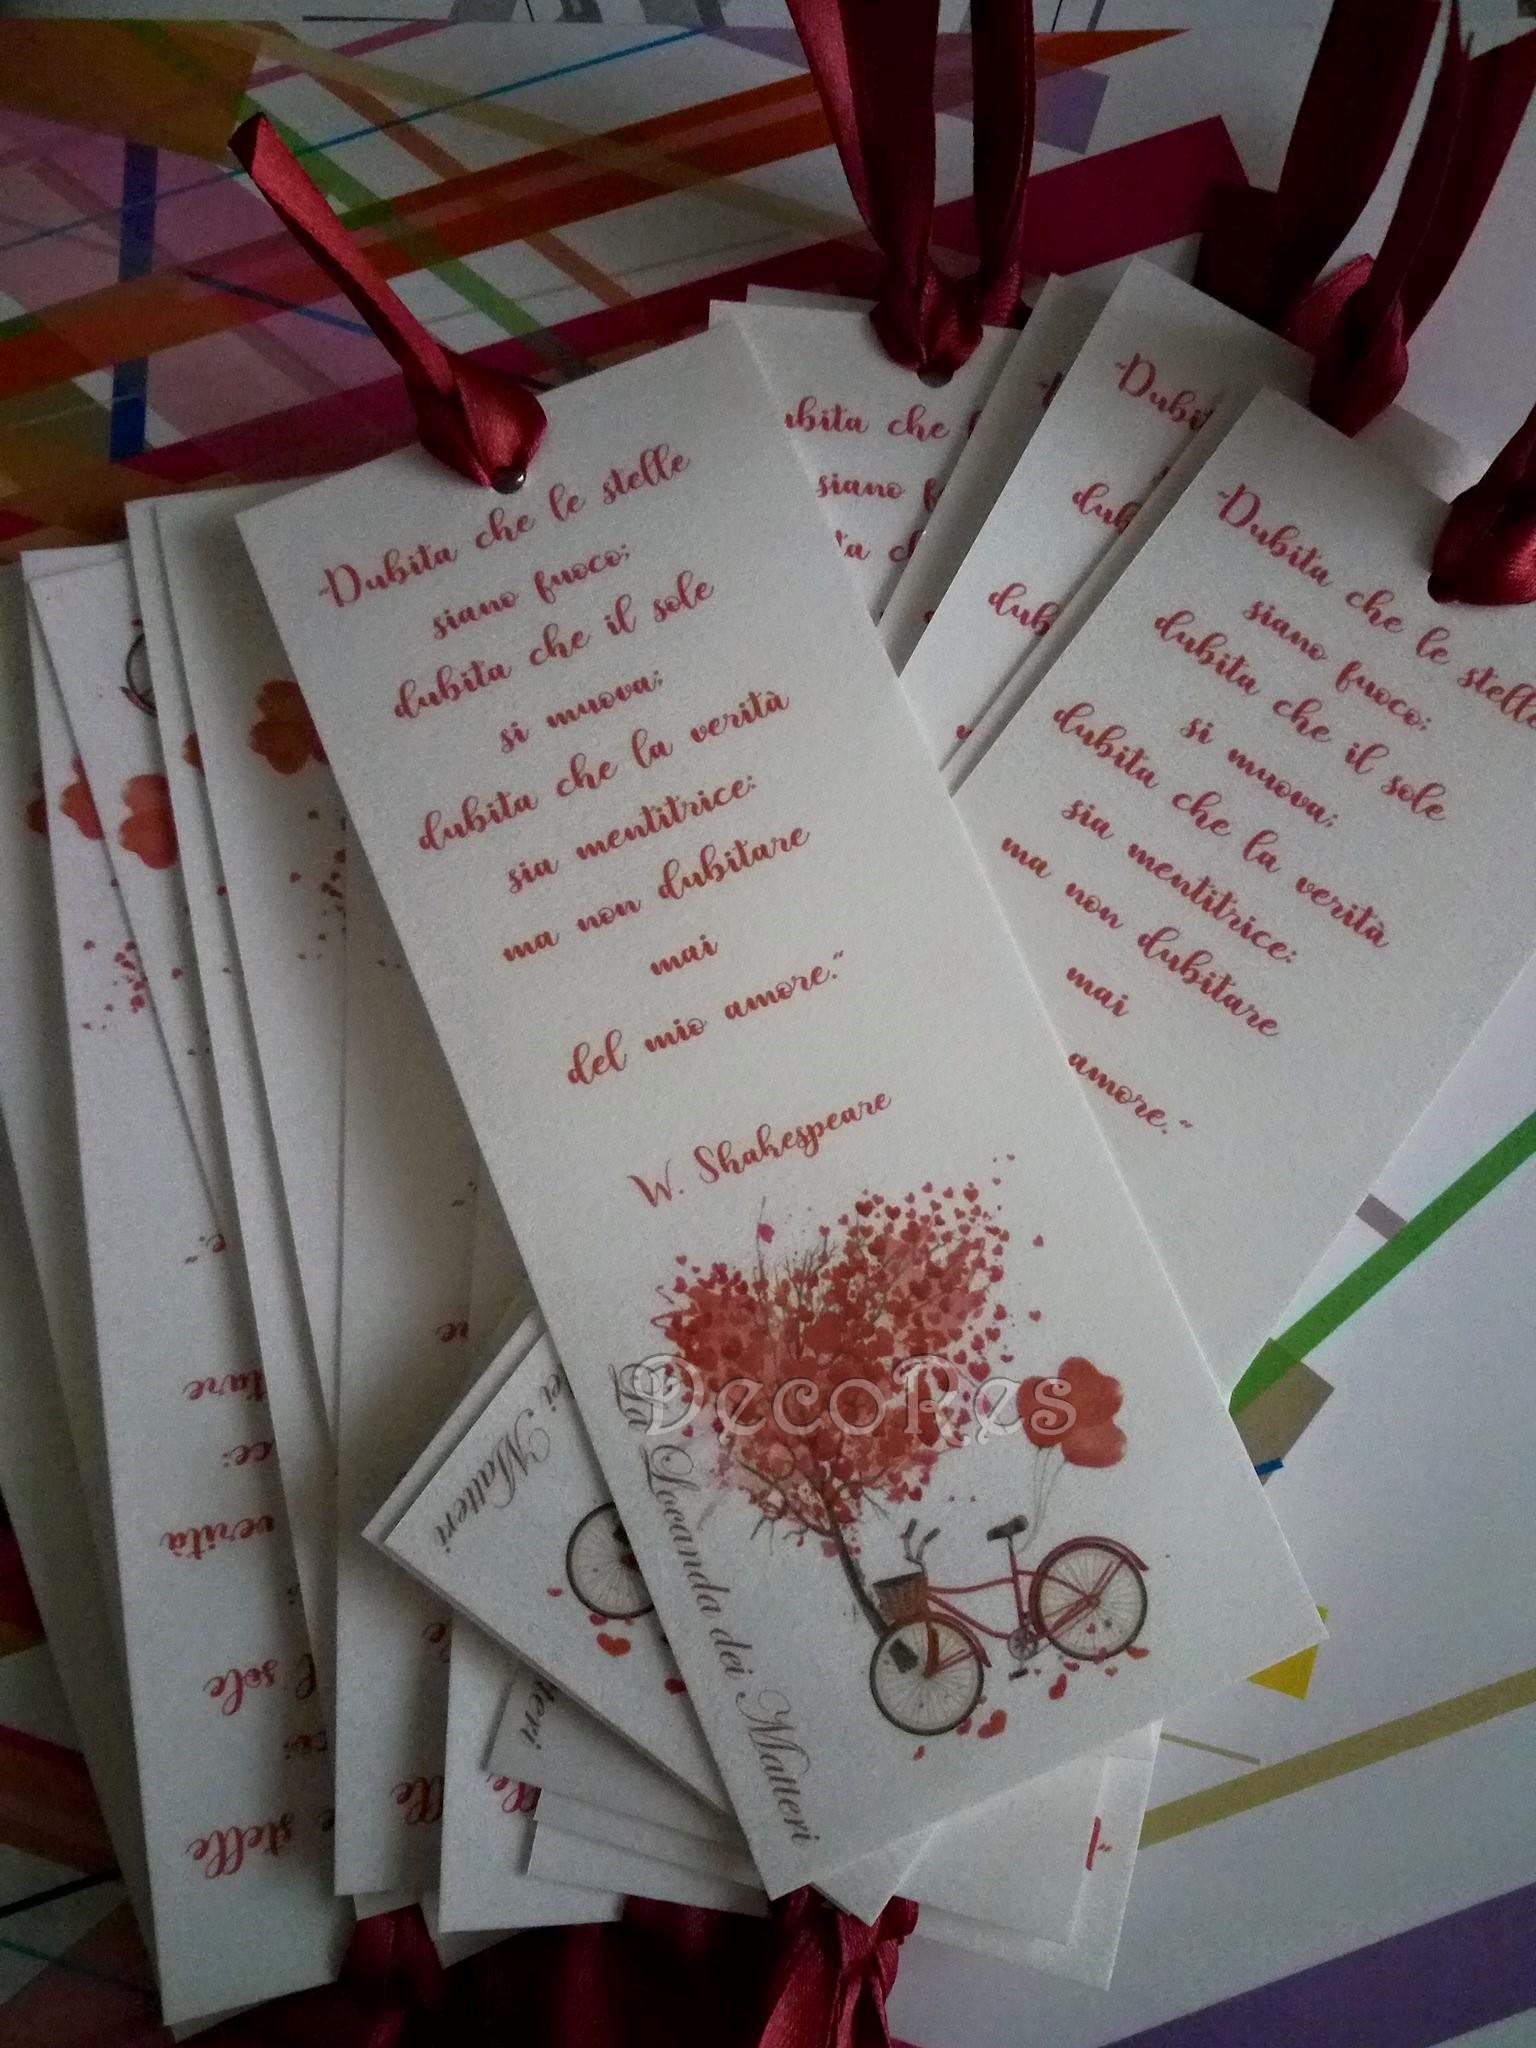 "Dubita che le stelle
siano fuoco;
dubita che il sole
si muova;
dubita che la verità
sia mentitrice:
ma non dubitare
mai
del mio amore."
W. Shakespeare
La Locanda dei Matteri
DecoRes
ubita che
siano
"Dubit
dub
dub
"Dubita che le stelle
siano fuoco;
dubita che il sole
si muova;
dubita che la verità
sia mentitrice:
ma non dubitare
mai
amore."
ei Matteri
tteri
verità
sole
stelle